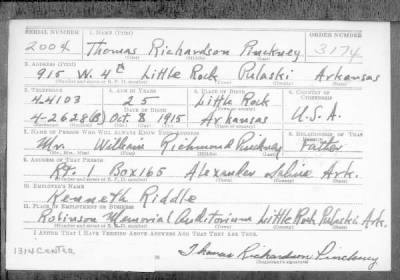 SERIAL NUMBER 1. NAME (Print) ORDER NUMBER
2004 Thomas Richardson Pinckney 3174
(First) (Middle) (Last)
2. ADDRESS (Print)
915 W. 4th Little Rock Pulaski Arkansas
(Number and street or R. F. D. number) (Town) (County) (State)
3. TELEPHONE 4. AGE IN YEARS 5. PLACE OF BIRTH 6. COUNTRY OF CITIZENSHIP
44103 25 Little Rock
DATE OF BIRTH
4-2628(B) Oct. 8, 1915 Arkansas U.S.A.
7. NAME OF PERSON WHO WILL ALWAYS KNOW YOUR ADDRESS 8. RELATIONSHIP OF THAT PERSON
Mr. William Richmond Pinckney Father
(Mr., Mrs., Miss) (First) (Middle) (Last)
9. ADDRESS OF THAT PERSON
Rt. 1 Box 165 Alexander Saline Ark.
(Number and street or R. F. D. number) (Town) (County) (State)
10. EMPLOYER'S NAME
Kenneth Riddle
11. PLACE OF EMPLOYMENT OR BUSINESS
Robinson Memorial Auditorium Little Rock Pulaski Ark.
(Number and street or R. F. D. number) (Town) (County) (State)
I AFFIRM THAT I HAVE VERIFIED ABOVE ANSWERS AND THAT THEY ARE TRUE.
1314 CENTER
Thomas Richardson Pinckney
(Registrant's signature)